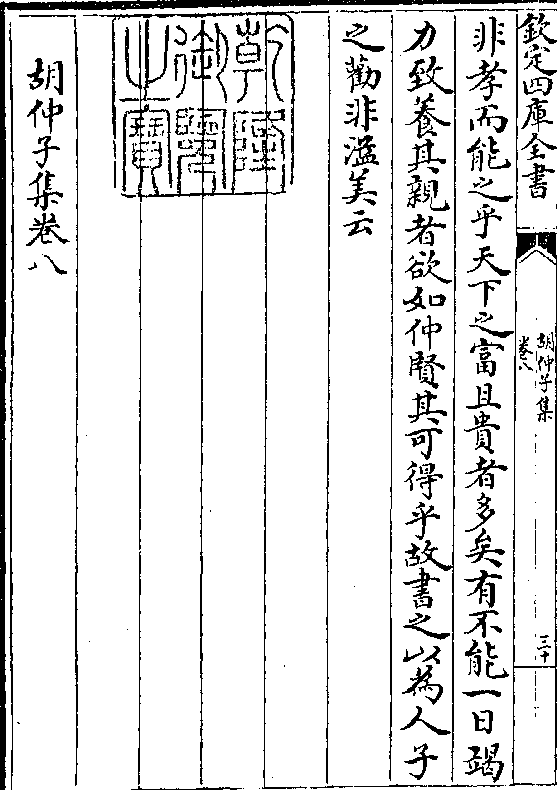 欽定四庫全書
胡仲子集
卷八
三十
非孝而能之乎天下之富且貴者多矣有不能一日竭
力致養其親者欲如仲賢其可得乎故書之以為人子
之勸非溢美云
乾隆御覽之寶
胡仲子集卷八